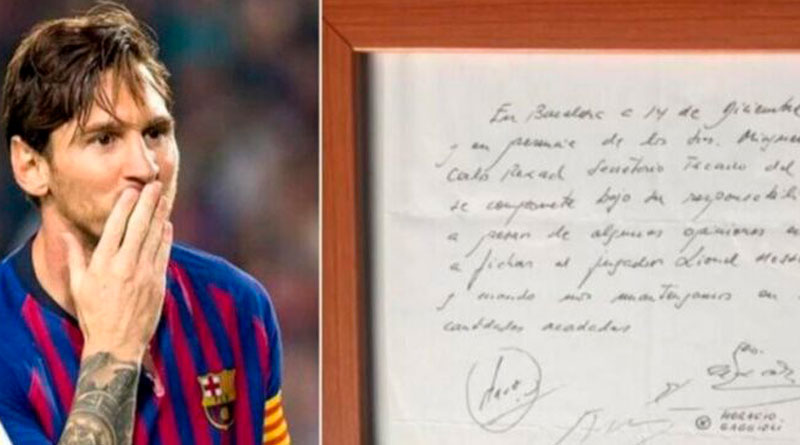 En Barcelona a 14 de diciembre
y en presencia de los Srs. Minguella
Carlos Rexach Secretario Técnico del
se compromete bajo su responsabili
a pesar de algunas opiniones en
a fichar al jugador Lionel Messi
y cuando nos mantengamos en
cantidades acordadas
HORACIO
GAGGIOLI